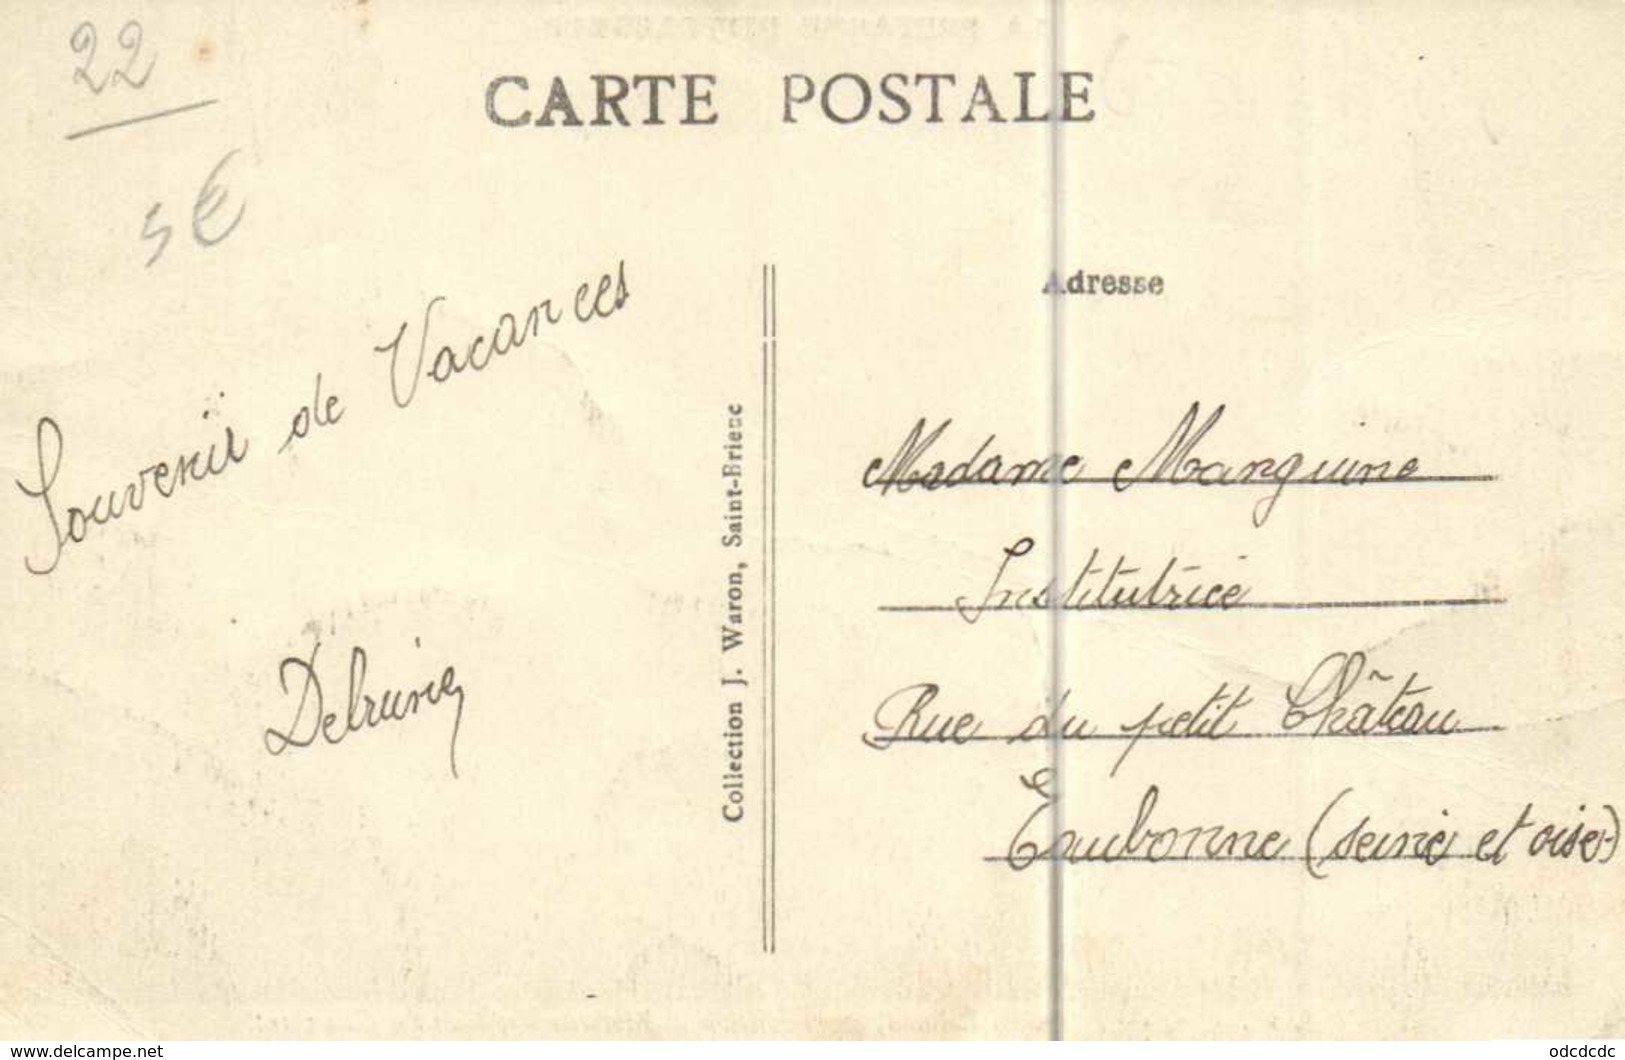 22
5€
CARTE POSTALE
Souvenir de Vacances
Collection J. Waron, Saint-Brieuc
Adresse
Madame Manguine
Institutrice
Rue du petit Château
Eaubonne (seine et oise)
www.delcampe.net
odcdcdc